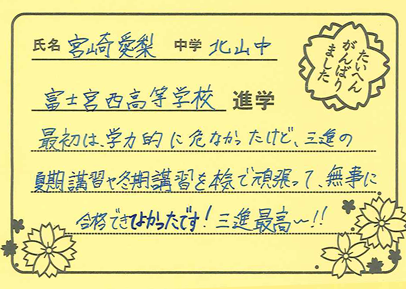 氏名 宮崎愛梨 中学 北山中
たいへん
がんばり
ました
富士宮西高等学校 進学
最初は、学力的に危なかったけど、三進の
夏期講習や冬期講習を本気で頑張って、無事に
合格できてよかったです！三進最高〜!!